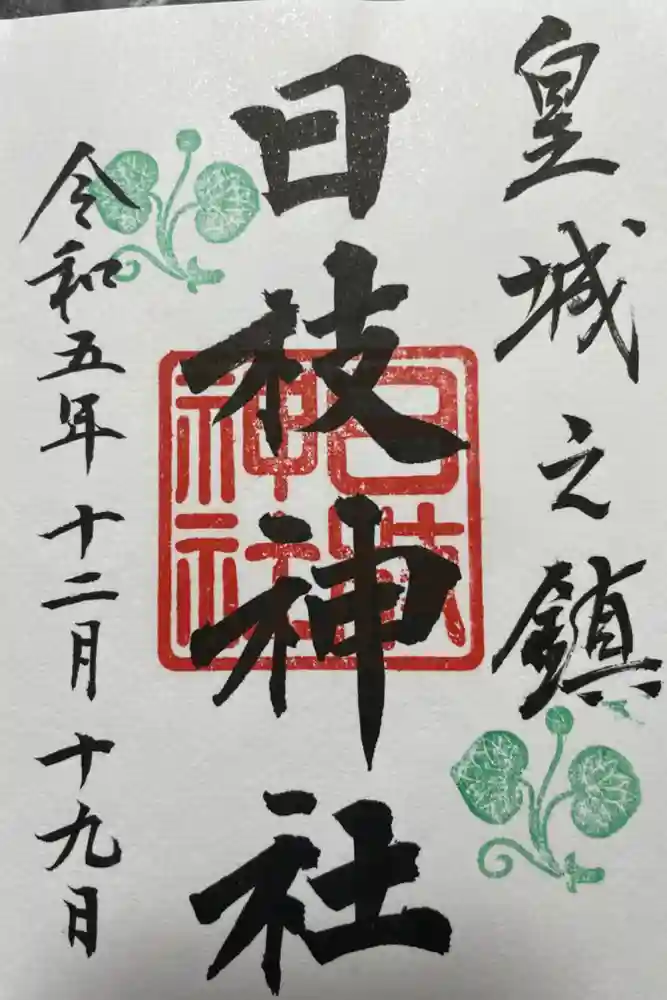 皇城之鎮
日枝神社
日枝神社
令和五年十二月十九日